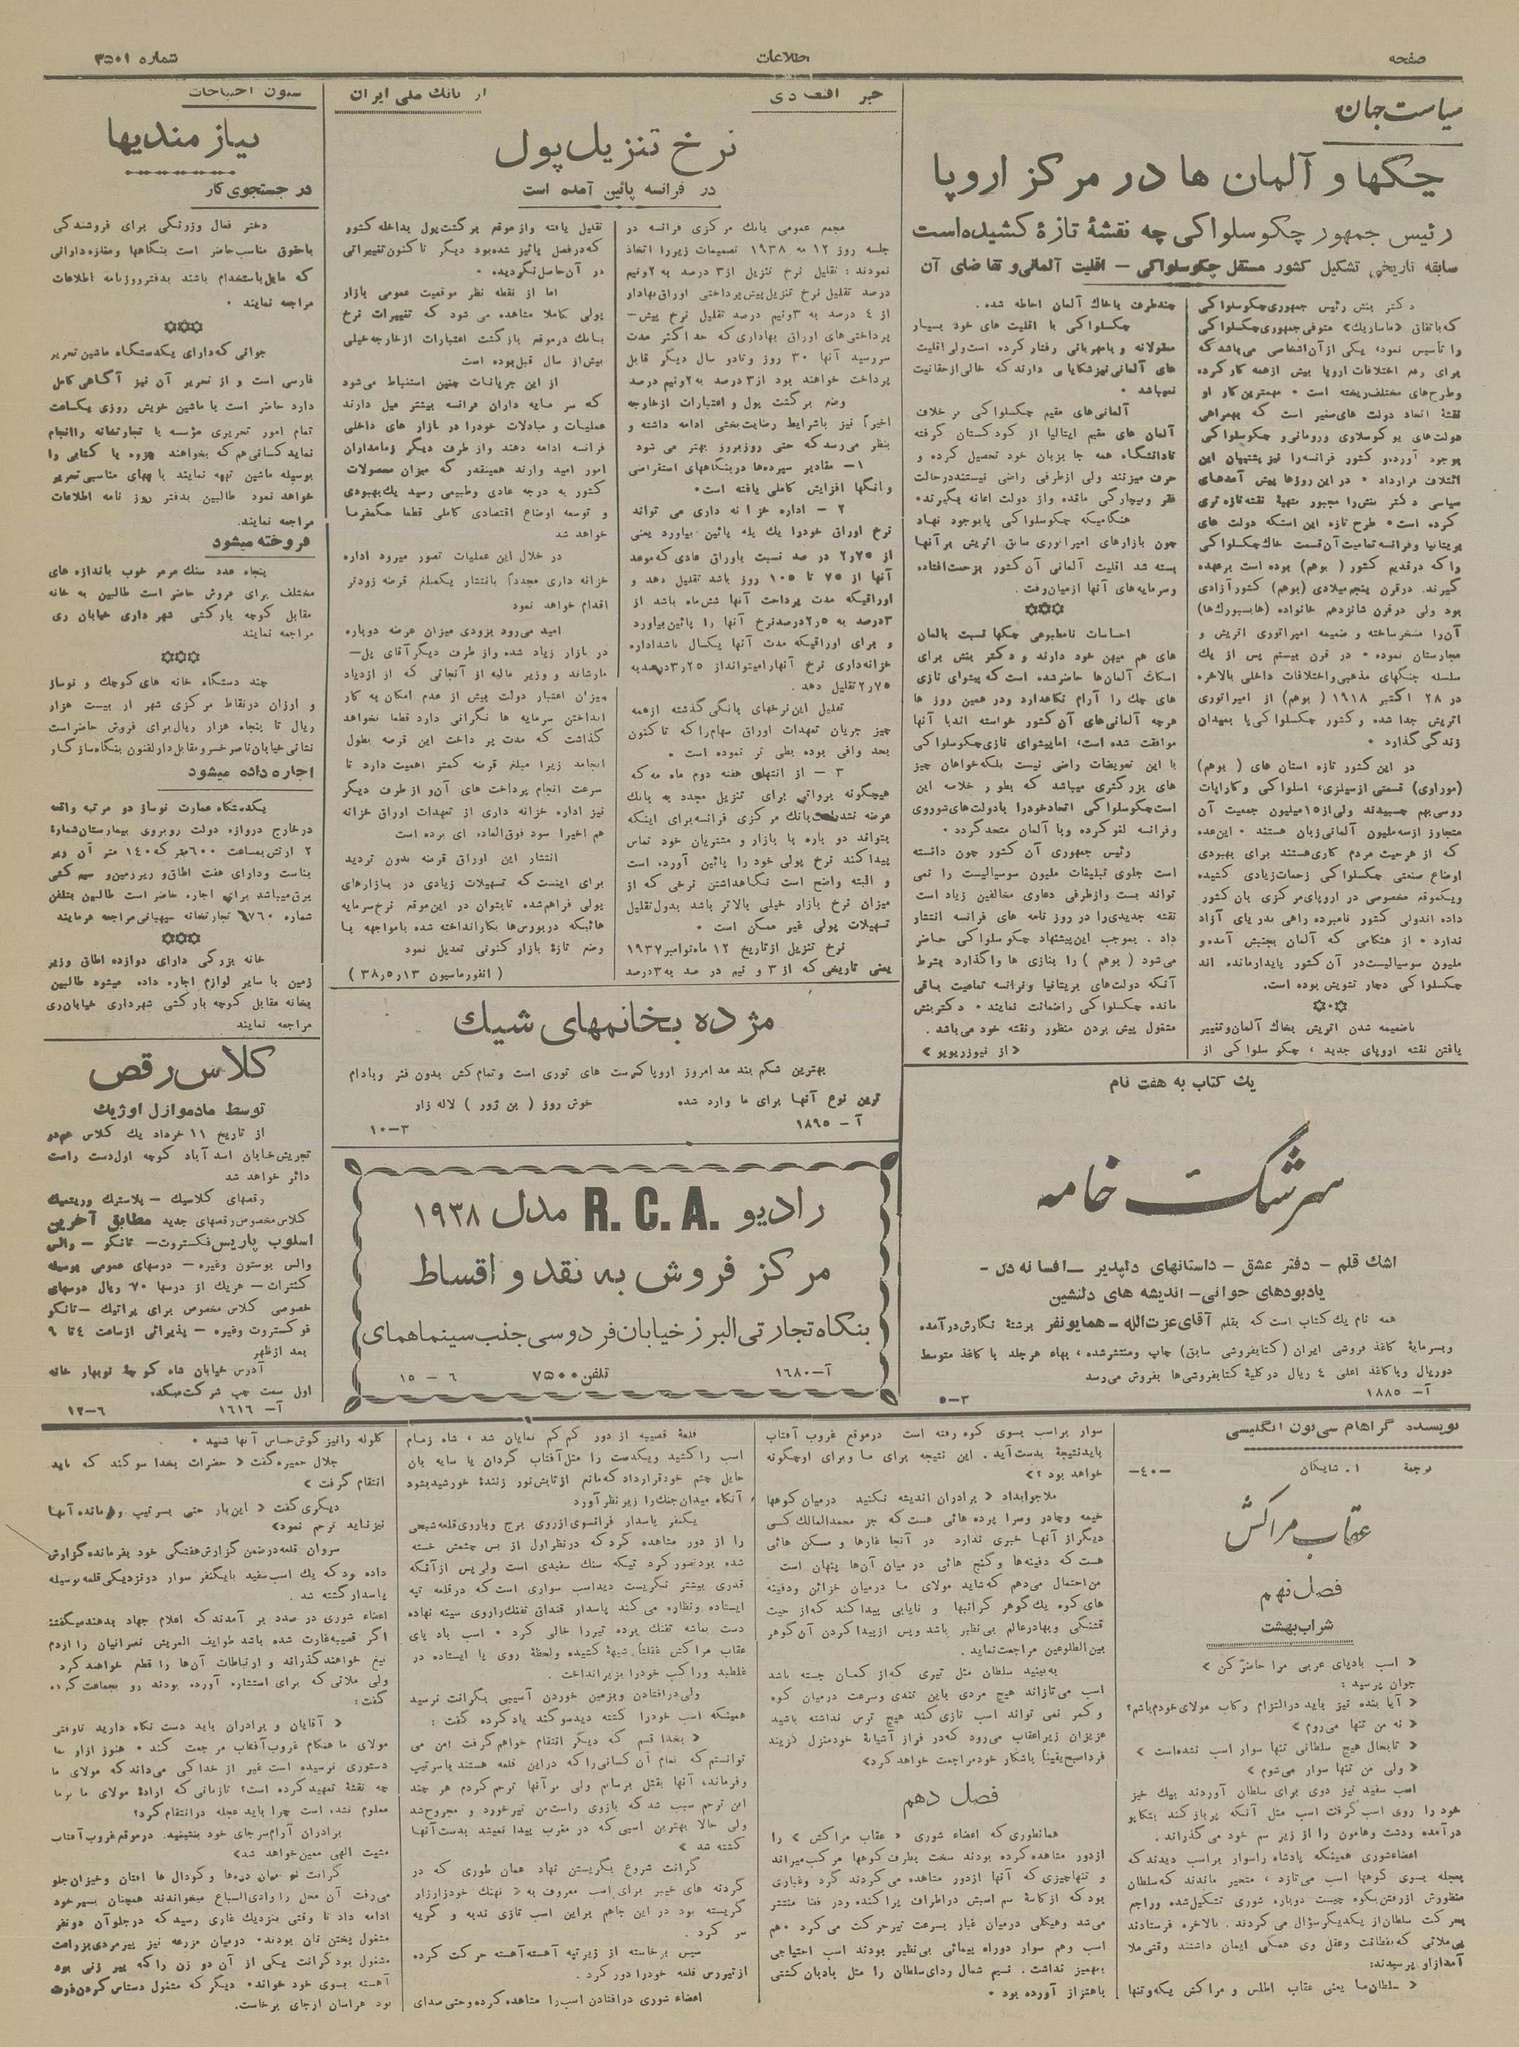 صفحه
اطلاعات
شماره ۳۵۰۱
سیاست جهان
چکها و آلمان ها در مرکز اروپا
رئیس جمهور چکوسلواکی چه نقشهٔ تازهٔ کشیده‌است
سابقه تاریخی تشکیل کشور مستقل چکوسلواکی – اقلیت آلمانی و تقاضای آن
دکتر بنش رئیس جمهوری چکوسلواکی
که باتفاق «ماساریك» متوفی جمهوری چکسلواکی
را تأسیس نمود، یکی از آن اشخاصی می‌باشد که
برای رفع اختلافات اروپا بیش از همه کار کرده
وطرح‌های مختلف ریخته است • مهمترین کار او
نقشهٔ اتحاد دولت های صغیر است که بهمراهی
دولت‌های یوگوسلاوی ورومانی و چکوسلواکی
بوجود آورده و کشور فرانسه را نیز پشتیبان این
ائتلاف قرارداد • در این روزها پیش آمدهای
سیاسی دکتر بنش را مجبور متهیهٔ نقشه تازه تری
کرده است • طرح تازه این استکه دولت های
بریتانیا وفرانسه تمامیت آن قسمت خاك چکسلواکی
را که در قدیم کشور ( بوهم ) بوده است برعهده
گیرند. درقرن پنجم میلادی (بوهم) کشور آزادی
بود ولی درقرن شانزدهم خانواده (هابسبورك‌ها)
آن‌را مسخر ساخته و ضمیمه امپراتوری اتریش و
مجارستان نموده • در قرن بیستم پس از یك
سلسله جنگهای مذهبی واختلافات داخلی بالاخره
در ۲۸ اکتبر ۱۹۱۸ ( بوهم ) از امپراتوری
اتریش جدا شده و کشور چکسلواکی پا بمیدان
زندگی گذارد •
در این کشور تازه استان های ( بوهم )
(موراوی) قسمتی از سیلزی، اسلواکی و کارپات
روسی بهم چسبیدند ولی از ۱۵ میلیون جمعیت آن
متجاوز از سه ملیون آلمانی زبان هستند • این عده
که از هرحیث مردم کاری هستند برای بهبودی
اوضاع صنعتی چکسلواکی زحمات زیادی کشیده
ویکموقع مخصوصی در اروپای مرکزی بان کشور
داده اندولی کشور نامبرده راهی بدریای آزاد
ندارد • از هنگامی که آلمان بجنبش آمده و
ملیون سوسیالیست در آن کشور پایدار مانده اند
چکسلواکی دچار تشویش بوده است.
باضمیمه شدن اتریش بخاك آلمان و تغییر
یافتن نقشه اروپای جدید، چکوسلواکی از
چند طرف باخاك آلمان احاطه شده.
چکسلواکی با اقلیت های خود بسیار
معقولانه و بامهربانی رفتار کرده است ولی اقلیت
های آلمانی نیز شکایاتی دارند که خالی از حقانیت
نمیباشد •
آلمانی‌های مقیم چکسلواکی بر خلاف
آلمان های مقیم ایتالیا از کودکستان گرفته
تادانشگاه همه جا بزبان خود تحصیل کرده و
حرف میزنند ولی از طرفی راضی نیستند درحالت
فقر و بیچارگی مانده واز دولت اعانه بگیرند •
هنگامیکه چکوسلواکی پابوجود نهاد
چون بازارهای امپراتوری سابق اتریش برآنها
بسته شد اقلیت آلمانی آن کشور بزحمت افتاده
وسرمایه‌های آنها از میان رفت.
احساسات نامطبوعی چکها نسبت بالمان
های هم میهن خود دارند و دکتر بنش برای
اسکات آلمان‌ها حاضر شده است که پیشوای نازی
های چك را آرام نگاهدارد ودر همین روز ها
هرچه آلمانی‌های آن کشور خواسته اند با آنها
موافقت شده است، اما پیشوای نازی چکوسلواکی
با این تعویضات راضی نیست بلکه خواهان چیز
های بزرگتری میباشد که بطور خلاصه این
است چکوسلواکی اتحاد خود را با دولت‌های شوروی
وفرانسه لغو کرده وبا آلمان متحد گردد •
رئیس جمهوری آن کشور چون دانسته
است جلوی تبلیغات ملیون سوسیالیست را نمی
تواند بست واز طرفی دعاوی مخالفین زیاد است
نقشه جدیدی را در روز نامه های فرانسه انتشار
داد . بموجب این پیشنهاد چکوسلواکی حاضر
می‌شود ( بوهم ) را بنازی ها واگذارد بشرط
آنکه دولت‌های بریتانیا وفرانسه تمامیت باقی
مانده چکسلواکی راضمانت نمایند • دکتر بنش
مشغول پیش بردن منظور ونقشه خود می‌باشد .
«از نیوزریویو»
یك کتاب به هفت نام
سرشگ خامه
اشك قلم – دفتر عشق – داستانهای دلپذیر – افسانه دل –
یادبودهای جوانی – اندیشه های دلنشین
همه نام یك کتاب است که بقلم آقای عزت‌الله – همایونفر برشتهٔ نگارش درآمده
وبسرمایهٔ کاغذ فروشی ایران (کتابفروشی سابق) چاپ ومنتشر شده، بهاء هرجلد با کاغذ متوسط
دوریال وباکاغذ اعلی ٤ ریال در کلیهٔ کتابفروشی‌ها بفروش می‌رسد
آ- ۱۸۸۵
۳-۵
خبر اقتصادی
از بانك ملی ایران
نرخ تنزیل پول
در فرانسه پائین آمده است
مجمع عمومی بانك مرکزی فرانسه در
جلسه روز ۱۲ مه ۱۹۳۸ تصمیمات زیر را اتخاذ
نمودند : تقلیل نرخ تنزیل از ۳ درصد به ۲ ونیم
درصد تقلیل نرخ تنزیل پیش پرداختی اوراق بهادار
از ٤ درصد به ۳ ونیم درصد تقلیل نرخ پیش –
پرداختی‌های اوراق بهاداری که حداکثر مدت
سررسید آنها ۳۰ روز وتادو سال دیگر قابل
پرداخت خواهند بود از ۳ درصد به ۲ ونیم درصد
وضع برگشت پول و اعتبارات از خارجه
اخیراً نیز باشرایط رضایت بخشی ادامه داشته و
بنظر می‌رسد که حتی روز بروز بهتر می شود
۱ – مقادیر سپرده‌ها در بنگاههای استقراضی
وبانگها افزایش کاملی یافته است •
۲ – اداره خزانه داری می تواند
نرخ اوراق خود را یك پله پائین بیاورد یعنی
از ۲٫۷۵ در صد نسبت باوراق عادی که موعد
آنها از ۷۵ تا ۱۰۵ روز باشد تقلیل دهد و
اوراقیکه مدت پرداخت آنها شش ماه باشد از
۳ درصد به ۲٫۵ درصد نرخ آنها را پائین بیاورد
و برای اوراقیکه مدت آنها یکسال باشد اداره
خزانه‌داری نرخ آنها را میتواند از ۳٫۲۵ درصد به
۲٫۷۵ تقلیل دهد .
تقلیل این نرخهای بانگی گذشته از همه
چیز جریان تعهدات اوراق سهام را که تا کنون
بحد وافی بوده بطی تر نموده است •
۳ – از انتهای هفته دوم ماه مه که
هیچگونه برواتی برای تنزیل مجدد به بانك
عرضه نشده است بانك مرکزی فرانسه برای اینکه
بتواند دو باره با بازار و مشتریان خود تماس
پیدا کند نرخ پولی خود را پائین آورده است
و البته واضح است نگاهداشتن نرخی که از
میزان نرخ بازار خیلی بالاتر باشد بدول تقلیل
تسهیلات پولی غیر ممکن است •
نرخ تنزیل از تاریخ ۱۲ ماه نوامبر ۱۹۳۷
یعنی تاریخی که از ۳ و نیم در صد به ۳ درصد
تقلیل یافته و از موقع برگشت پول بداخله کشور
که در فصل پائیز شده بود دیگر تاکنون تغییراتی
در آن حاصل نگردیده •
اما از نقطه نظر موقعیت عمومی بازار
پولی کاملا مشاهده می شود که تغییرات نرخ
بانك درموقع باز گشت اعتبارات از خارجه خیلی
بیش از سال قبل بوده است
از این جریانات چنین استنباط می‌شود
که سر مایه داران فرانسه بیشتر میل دارند
عملیات و مبادلات خود را در بازار های داخلی
فرانسه ادامه دهند واز طرف دیگر زمامداران
امور امید وارند همینقدر که میزان محصولات
کشور به درجه عادی وطبیعی رسید یك بهبودی
و توسعه اوضاع اقتصادی کاملی قطعا حکمفرما
خواهد شد
در خلال این عملیات تصور میرود اداره
خزانه داری مجدداً بانتشار یکقلم قرضه زودتر
اقدام خواهد نمود
امید می‌رود بزودی میزان عرضه دوباره
در بازار زیاد شده واز طرف دیگر آقای پل –
مارشاند و وزیر مالیه از آنجائی که از ازدیاد
میزان اعتبار دولت پیش از عدم امکان به کار
انداختن سرمایه ها نگرانی دارد قطعا نخواهد
گذاشت که مدت پرداخت این قرضه بطول
انجامد زیرا مبلغ قرضه کمتر اهمیت دارد تا
سرعت انجام پرداخت های آن و از طرف دیگر
نیز اداره خزانه داری از تعهدات اوراق خزانه
هم اخیرا سود فوق‌العاده ای برده است
انتشار این اوراق قرضه بدون تردید
برای اینست که تسهیلات زیادی در بازارهای
پولی فراهم شده تابتوان در این موقع نرخ سرمایه
هائیکه دربورس‌ها بکار انداخته شده بامواجهه با
وضع تازهٔ بازار کنونی تعدیل نمود
( انفورماسیون ۳۸٫۵٫۱۳ )
مژده بخانمهای شیك
بهترین شکم بند مد امروز اروپا کرست های توری است وتمام کش بدون فنر وبادام
ترین نوع آنها برای ما وارد شده
خوش روز ( بن ژور ) لاله زار
آ – ۱۸۹۵
۳–۱۰
رادیو R.C.A. مدل ۱۹۳۸
مرکز فروش به نقد و اقساط
بنگاه تجارتی البرز خیابان فردوسی جنب سینماهمای
آ- ۱۶۸۰
تلفن ۷۵۰۰
۶ – ۱۵
ستون احتیاجات
نیاز مندیها
در جستجوی کار
دختر فعال وزرنگی برای فروشندگی
باحقوق مناسب حاضر است بنگاهها ومغازه دارانی
که مایل باستخدام باشند بدفتر روزنامه اطلاعات
مراجعه نمایند •
جوانی که دارای یکدستگاه ماشین تحریر
فارسی است و از تحریر آن نیز آگاهی کامل
دارد حاضر است با ماشین خویش روزی یکساعت
تمام امور تحریری مؤسسه یا تجارتخانه را انجام
نماید کسانی هم که بخواهند جزوه یا کتابی را
بوسیله ماشین تهیه نمایند با بهای مناسبی تحریر
خواهد نمود طالبین بدفتر روز نامه اطلاعات
مراجعه نمایند.
فروخته میشود
پنجاه عدد سنك مرمر خوب باندازه های
مختلف برای فروش حاضر است طالبین به خانه
مقابل کوچه بارکشی شهر داری خیابان ری
مراجعه نمایند
چند دستگاه خانه های کوچك و نوساز
و ارزان در نقاط مرکزی شهر از بیست هزار
ریال تا پنجاه هزار ریال برای فروش حاضر است
نشانی خیابان ناصر خسرو مقابل دارلفنون بنگاه سازگار
اجاره داده میشود
یکدستگاه عمارت نوساز دو مرتبه واقعه
در خارج دروازه دولت روبروی بیمارستان شمارهٔ
۲ ارتش بمساحت ۶۰۰ متر که ۱٤۰ متر آن زیر
بناست ودارای هفت اطاق و زیرزمین و سیم کشی
برق میباشد برای اجاره حاضر است طالبین بتلفن
شماره ۶۷۶۰ تجارتخانه سپهبانی مراجعه فرمایند
خانه بزرگی دارای دوازده اطاق وزیر
زمین با سایر لوازم اجاره داده میشود طالبین
بخانه مقابل کوچه بارکشی شهرداری خیابان ری
مراجعه نمایند
کلاس رقص
توسط مادموازل اوژیك
از تاریخ ۱۱ خرداد یك کلاس هم در
تجریش خیابان اسد آباد کوچه اول دست راست
دائر خواهد شد
رقصهای کلاسیك – پلاستیك وریتمیك
کلاس مخصوص رقصهای جدید مطابق آخرین
اسلوب پاریس فکستروت – تانگو – والس
والس بوستون وغیره – درسهای عمومی بوسیله
کنترات – هریك از درسها ۷۰ ریال درسهای
خصوصی کلاس مخصوص برای پراتیك – تانگو
فوکستروت وغیره – پذیرائی از ساعت ٤ تا ۹
بعد از ظهر
آدرس خیابان شاه کوچهٔ نوبهار خانه
اول سمت چپ شرکت میکده
آ- ۱۶۱۶
۶–۱۲
نویسنده گراهام سی‌تون انگلیسی
ترجمهٔ ا. شایگان
–٤۰–
عقاب مراکش
فصل نهم
شراب بهشت
« اسب بادپای عربی مرا حاضر کن »
جوان پرسید :
« آیا بنده نیز باید در التزام رکاب مولای خودم باشم؟
« نه من تنها می‌روم »
« تابحال هیچ سلطانی تنها سوار اسب نشده‌است »
« ولی من تنها سوار می‌شوم »
اسب سفید تیز دوی برای سلطان آوردند بیك خیز
خود را روی اسب گرفت اسب مثل آنکه پر باز کند بتکاپو
درآمده ودشت وهامون را از زیر سم خود می‌گذراند.
اعضاء شوری همینکه پادشاه را سوار براسب دیدند که
بعجله بسوی کوهها اسب می‌تازد، متحیر ماندند که سلطان
منظورش از رفتن بکوه چیست دوباره شوری تشکیل شده وراجع
بحرکت سلطان از یکدیگر سؤال می‌کردند . بالاخره فرستادند
پی ملائی که بفطانت وعقل وی همگی ایمان داشتند وقتی ملا
آمد از او پرسیدند:
« سلطان ما یعنی عقاب اطلس و مراکش یکه وتنها
سوار براسب بسوی کوه رفته است درموقع غروب آفتاب
باید نتیجهٔ بدست آید . این نتیجه برای ما وبرای او چگونه
خواهد بود ؟»
ملا جوابداد « برادران اندیشه نکنید درمیان کوهها
خیمه وچادر وسرا پرده هائی هست که جز محمدالمالك کسی
دیگر از آنها خبری ندارد در آنجا غارها و مسکن هائی
هست که دفینه‌ها وگنج هائی در میان آن‌ها پنهان است
من احتمال می‌دهم که شاید مولای ما درمیان خزائن ودفینهٔ
های کوه یك گوهر گرانبها و نایابی پیدا کند که از حیث
قشنگی وبهادر عالم بی‌نظیر باشد و پس از پیدا کردن آن گوهر
بین الطلوعین مراجعت نماید.
به‌بینید سلطان مثل تیری که از کمان جسته باشد
اسب می‌تازاند هیچ مردی باین تندی وسرعت درمیان کوه
و کمر نمی تواند اسب تازی کند هیچ ترس نداشته باشید
عزیزان زیرا عقاب می‌رود که در فراز آشیانهٔ خود منزل گزیند
فردا صبح یقیناً باشکار خود مراجعت خواهد کرد»
فصل دهم
همانطوری که اعضاء شوری « عقاب مراکش » را
ازدور مشاهده کرده بودند سخت بطرف کوهها مرکب میراند
و تنها چیزی که آنها ازدور مشاهده می‌کردند گرد وغباری
بود که از کاسهٔ سم اسبش در اطراف پراکنده ودر فضا منتشر
می‌شد وهیکلی درمیان غبار بسرعت تیر حرکت می‌کرد • هم
اسب وهم سوار دوراه پیمائی بی‌نظیر بودند اسب احتیاجی
بمهمیز نداشت. نسیم شمال ردای سلطان را مثل بادبان کشتی
باهتزاز آورده بود •
قلعهٔ قصیبه از دور کم کم نمایان شد، شاه زمام
اسب را کشید ویکدست را مثل آفتاب گردان یا سایه بان
حایل چشم خود قرارداد که مانع از تابش نور زنندهٔ خورشید بشود
آنگاه میدان جنك را زیر نظر آورد
یکنفر پاسدار فرانسوی از روی برج وباروی قلعه شبحی
را از دور مشاهده کرد که درنظر اول از بس چشمش خسته
شده بود تصور کرد تیکه سنك سفیدی است ولی پس از آنکه
قدری بیشتر نگریست دید اسب سواری است که در قلعه تپه
ایستاده ونظاره می‌کند پاسدار قنداق تفنك را روی سینه نهاده
دست بماشه تفنك برده تیر را خالی کرد • اسب باد پای
عقاب مراکش غفلتاً شیههٔ کشیده ولحظهٔ روی پا ایستاده در
غلطید وراکب خود را بزیر انداخت.
ولی درافتادن وبزمین خوردن آسیبی بگرانت نرسید
همینکه اسب خود را کشته دید سوگند یاد کرده گفت :
« بخدا قسم که دیگر انتقام خواهم گرفت من می
توانستم که تمام آن کسانی را که دراین قلعه هستند با سرتیپ
وفرمانده آنها بقتل برسانم ولی برآنها ترحم کردم هر چند
این ترحم سبب شد که بازوی راست من تیر خورد و مجروح شد
ولی حالا بهترین اسبی که در مغرب پیدا نمیشد بدست آنها
کشته شد »
گرانت شروع بگریستن نهاد همان طوری که در
گردنه های خیبر برای اسب معروف به « نهنك خود زار زار
گریسته بود در این جاهم براین اسب تازی ندبه و گریه
سر کرد .
سپس برخاسته از زیر تپه آهسته آهسته حرکت کرده
از تیررس قلعه خود را دور کرد .
اعضاء شوری درافتادن اسب را مشاهده کرده وحتی صدای
گلوله را نیز گوش حساس آنها شنید •
جلال حمیره گفت « حضرات بخدا سوگند که باید
انتقام گرفت »
دیگری گفت « این بار حتی بسرتیپ وفرمانده آنها
نیز نباید ترحم نمود»
سروان قلعه درضمن گزارش هفتگی خود بفرمانده گزارش
داده بود که یك اسب سفید بایکنفر سوار در نزدیکی قلعه بوسیله
پاسدار کشته شد .
اعضاء شوری در صدد بر آمدند که اعلام جهاد بدهند میگفتند
اگر قصیبه غارت شده باشد طوایف العریش نصرانیان را از دم
تیغ خواهند گذرانید و ارتباطات آن‌ها را قطع خواهند کرد
ولی ملائی که برای استشاره آورده بودند رو بجماعت کرده
گفت :
« آقایان و برادران باید دست نگاه دارید تا وقتی
مولای ما هنگام غروب آفتاب مراجعت کند • هنوز از او بما
دستوری نرسیده است غیر از خدا کی می‌داند که مولای ما
چه نقشهٔ تمهید کرده است؟ تا زمانی که ارادهٔ مولای ما برما
معلوم نشده است چرا باید عجله درانتقام کرد؟
برادران آرام سرجای خود بنشینید. درموقع غروب آفتاب
مشیت الهی معین خواهد شد»
گرانت در میان دره‌ها و گودال ها افتان وخیزان جلو
می‌رفت آن محل را وادی السباع میخواندند همچنان بسیر خود
ادامه داد تا وقتی بنزدیك غاری رسید که در جلو آن دو نفر
مشغول پختن نان بودند • درمیان مزرعه نیز پیرمردی بزراعت
مشغول بود گرانت یکی از آن دو زن را که پیر زنی بود
آهسته بسوی خود خواند • دیگر که مشغول دستاس کردن ذرت
بود هراسان از جای برخاست.